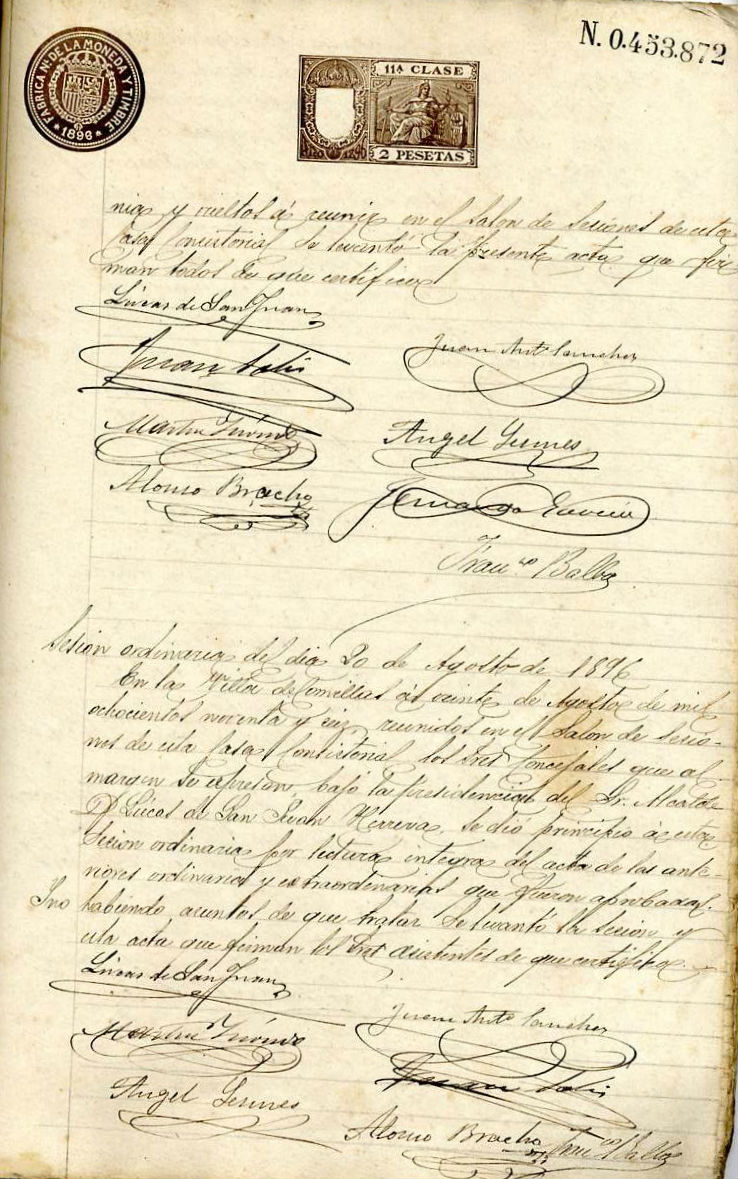 N. 0.453.872
FABRICA Nal DE LA MONEDA Y TIMBRE
1896
11ª CLASE
2 PESETAS
nia y vueltos á reunir en el Salon de Sesiones de esta
Casa Consistorial se levantó la presente acta que fir
man todos de que certifico
Lucas de San Juan
Juan Solis
Juan Antº Sanchez
Martin
Angel
Alonso Bracho
Fernando Garcia
Franco Balbas
Sesion ordinaria del dia 20 de Agosto de 1896
En la Villa de Comillas á veinte de Agosto de mil
ochocientos noventa y seis, reunidos en el Salon de Sesio-
nes de esta Casa Consistorial los Sres Concejales que al
margen se espresan, bajo la presidencia del Sr. Alcalde
D. Lucas de San Juan Herrera, se dió principio á esta
Sesion ordinaria por lectura integra del acta de las ante-
riores ordinaria y extraordinarias que fueron aprobadas.
Y no habiendo asuntos de que tratar se levantó la sesion y
esta acta que firman los Sres asistentes de que certifico.
Lucas de San Juan
Juan Antº Sanchez
Martin
Juan Solis
Angel
Alonso Bracho
Franco Balbas